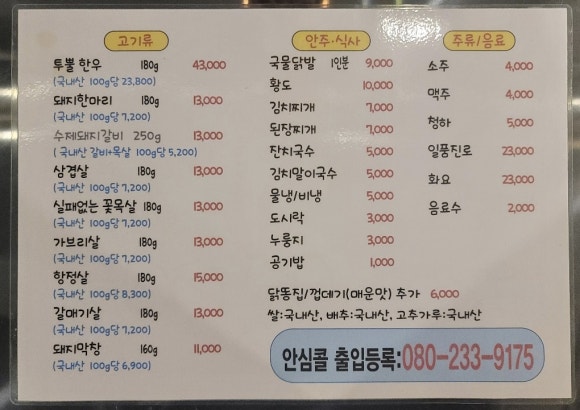 고기류
투뿔 한우 180g 43,000
(국내산 100g당 23,800)
돼지한마리 180g 13,000
(국내산 100g당 7,200)
수제돼지갈비 250g 13,000
( 국내산 갈비+목살 100g당 5,200)
삼겹살 180g 13,000
(국내산 100g당 7,200)
실패없는 꽃목살 180g 13,000
(국내산 100g당 7,200)
가브리살 180g 13,000
(국내산 100g당 7,200)
항정살 180g 15,000
(국내산 100g당 8,300)
갈매기살 180g 13,000
(국내산 100g당 7,200)
돼지막창 160g 11,000
(국내산 100g당 6,900)
안주·식사
국물닭발 1인분 9,000
황도 10,000
김치찌개 7,000
된장찌개 7,000
잔치국수 5,000
김치말이국수 5,000
물냉/비냉 5,000
도시락 3,000
누룽지 3,000
공기밥 1,000
주류/음료
소주 4,000
맥주 4,000
청하 5,000
일품진로 23,000
화요 23,000
음료수 2,000
닭똥집/껍데기(매운맛) 추가 6,000
쌀:국내산, 배추:국내산, 고추가루:국내산
안심콜 출입등록:080-233-9175